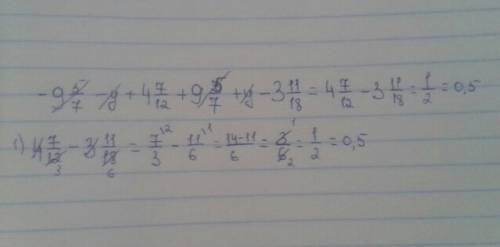 -9 5/7 - y + 4 7/12 + 9 5/7 + y - 3 11/18 = 4 7/12 - 3 11/18 = 1/2 = 0,5
1) 4 7/12 3 - 3 11/18 6 = 7/3 \2 - 11/6 \1 = 14-11/6 = 3 1/6 2 = 1/2 = 0,5